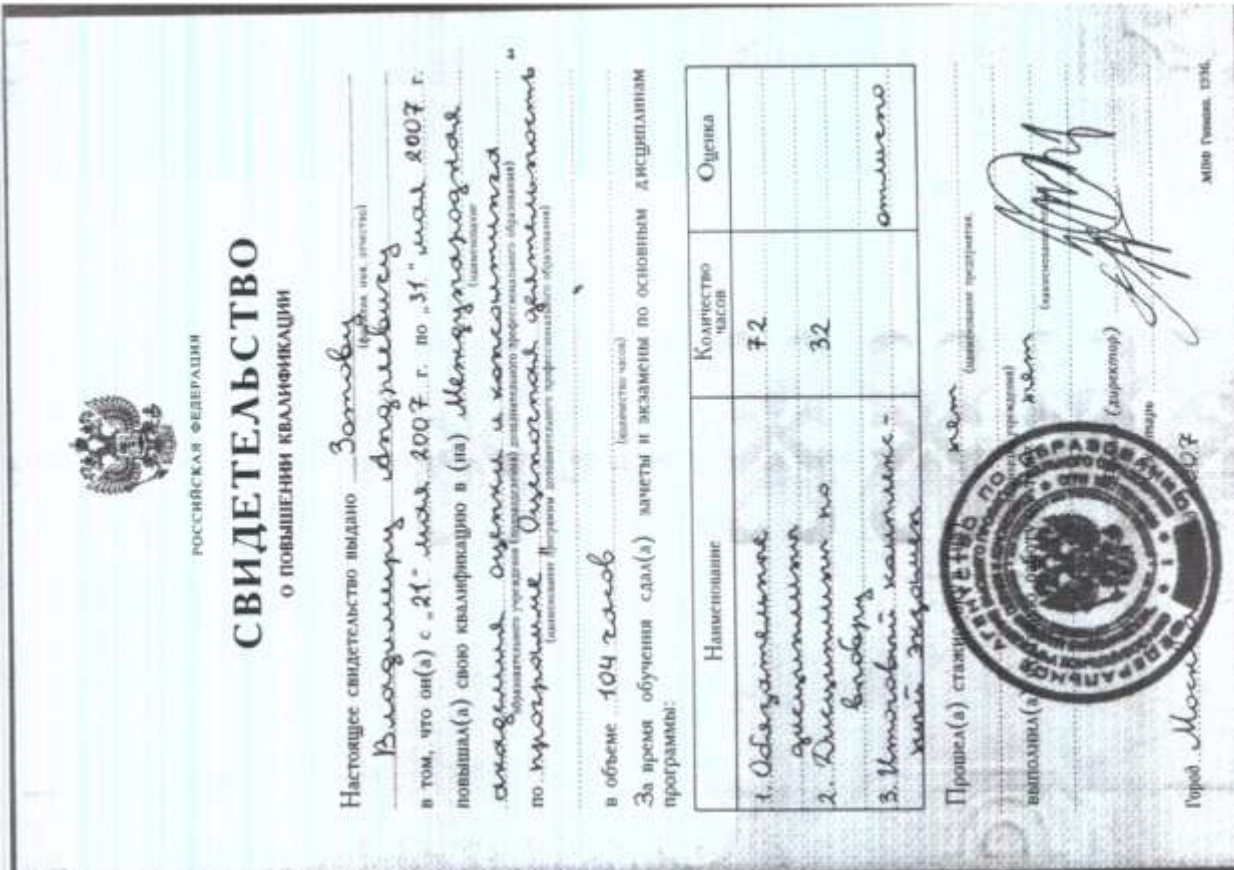 РОССИЙСКАЯ ФЕДЕРАЦИЯ
СВИДЕТЕЛЬСТВО
О ПОВЫШЕНИИ КВАЛИФИКАЦИИ
Настоящее свидетельство выдано Зотову
(фамилия, имя, отчество)
Владимиру Андреевичу
в том, что он(а) с „21" мая 2007 г. по „31" мая 2007 г.
повышал(а) свою квалификацию в (на) Международной
(наименование
академии оценки и консалтинга
образовательного учреждения (подразделения) дополнительного профессионального образования)
по программе „Оценочная деятельность"
(наименование программы дополнительного профессионального образования)
в объеме 104 часов
(количество часов)
За время обучения сдал(а) зачеты и экзамены по основным дисциплинам
программы:
Наименование Количество часов Оценка
1. Обязательные
дисциплины 72
2. Дисциплины по 32
выбору
3. Итоговый комплекс-
ный экзамен отлично
Прошел(а) нет
(наименование предприятия,
выполнил(а) нет
(наименование
(директор)
Город Москва
ФЕДЕРАЛЬНОЕ АГЕНТСТВО ПО ОБРАЗОВАНИЮ